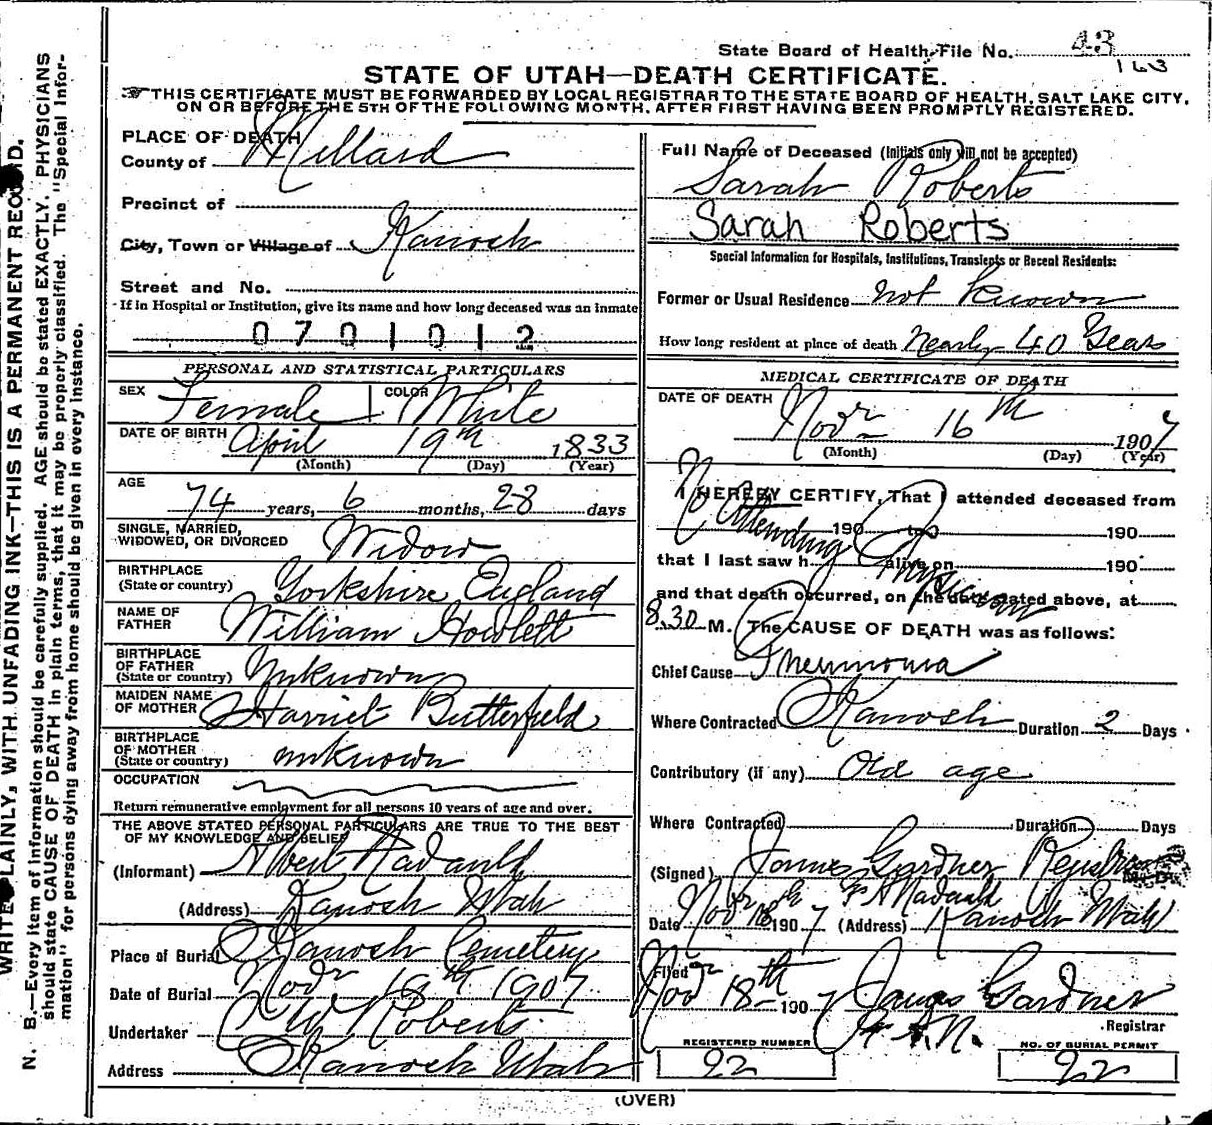 State Board of Health File No. 43
163
STATE OF UTAH—DEATH CERTIFICATE.
THIS CERTIFICATE MUST BE FORWARDED BY LOCAL REGISTRAR TO THE STATE BOARD OF HEALTH, SALT LAKE CITY,
ON OR BEFORE THE 5TH OF THE FOLLOWING MONTH, AFTER FIRST HAVING BEEN PROMPTLY REGISTERED.
WRITE PLAINLY, WITH UNFADING INK—THIS IS A PERMANENT RECORD.
N. B.—Every item of information should be carefully supplied. AGE should be stated EXACTLY. PHYSICIANS
should state CAUSE OF DEATH in plain terms, that it may be properly classified. The "Special Infor-
mation" for persons dying away from home should be given in every instance.
PLACE OF DEATH
County of Millard
Precinct of
City, Town or Village of Kanosh
Street and No.
If in Hospital or Institution, give its name and how long deceased was an inmate
0701012
PERSONAL AND STATISTICAL PARTICULARS
SEX Female COLOR White
DATE OF BIRTH April 19th 1833
(Month) (Day) (Year)
AGE
74 years, 6 months, 28 days
SINGLE, MARRIED,
WIDOWED, OR DIVORCED Widow
BIRTHPLACE
(State or country) Yorkshire England
NAME OF
FATHER William Howlett
BIRTHPLACE
OF FATHER
(State or country) Unknown
MAIDEN NAME
OF MOTHER Harriet Butterfield
BIRTHPLACE
OF MOTHER
(State or country) unknown
OCCUPATION
Return remunerative employment for all persons 10 years of age and over.
THE ABOVE STATED PERSONAL PARTICULARS ARE TRUE TO THE BEST
OF MY KNOWLEDGE AND BELIEF
(Informant)
(Address) Kanosh Utah
Place of Burial Kanosh Cemetery
Date of Burial Nov 19th 1907
Undertaker C W Roberts
Address Kanosh Utah
Full Name of Deceased (Initials only will not be accepted)
Sarah Roberts
Sarah Roberts
Special Information for Hospitals, Institutions, Transients or Recent Residents:
Former or Usual Residence not Known
How long resident at place of death Nearly 40 Years
MEDICAL CERTIFICATE OF DEATH
DATE OF DEATH
Novr 16th 1907
(Month) (Day) (Year)
I HEREBY CERTIFY, That I attended deceased from
190 to 190
No Attending Physician
that I last saw h alive on 190
and that death occurred, on the date stated above, at
8.30 M. The CAUSE OF DEATH was as follows:
Chief Cause Pneumonia
Where Contracted Kanosh Duration 2 Days
Contributory (if any) Old age
Where Contracted Duration Days
(Signed) James Gardner Registrar M. D.
Date Novr 18th 1907 (Address) Kanosh Utah
Filed Novr 18th 1907 James Gardner
Registrar
REGISTERED NUMBER
92
NO. OF BURIAL PERMIT
92
(OVER)